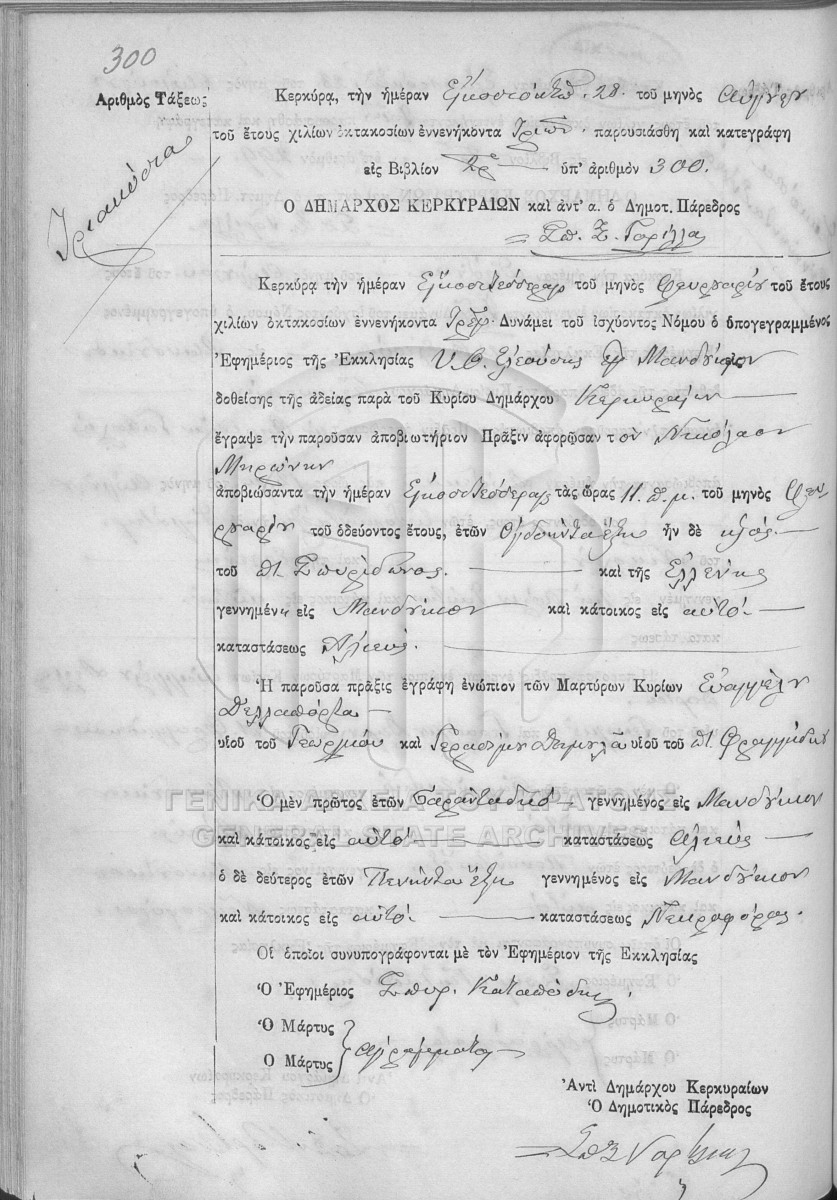 300
Ἀριθμὸς Τάξεως
Τριακόσια
Κερκύρᾳ, τὴν ἡμέραν Εἰκοστὸκτὼ 28. τοῦ μηνὸς
τοῦ ἔτους χιλίων ὀκτακοσίων ἐννενήκοντα Τρία παρουσιάσθη καὶ κατεγράφη
εἰς Βιβλίον ὑπ' ἀριθμὸν 300.
Ο ΔΗΜΑΡΧΟΣ ΚΕΡΚΥΡΑΙΩΝ καὶ ἀντ' α. ὁ Δημοτ. Πάρεδρος
Σπ. Σ.
Κερκύρᾳ τὴν ἡμέραν Εἴκοσι τέσσερας τοῦ μηνὸς Φευρουαρίου τοῦ ἔτους
χιλίων ὀκτακοσίων ἐννενήκοντα Τρεῖς Δυνάμει τοῦ ἰσχύοντος Νόμου ὁ ὑπογεγραμμένος
Ἐφημέριος τῆς Ἐκκλησίας Υ. Θ. Ἐλεούσης Μανδύκιον
δοθείσης τῆς ἀδείας παρὰ τοῦ Κυρίου Δημάρχου Κερκυραίων
ἔγραψε τὴν παροῦσαν ἀποβιωτήριον Πρᾶξιν ἀφορῶσαν τὸν Νικόλαον
ἀποβιώσαντα τὴν ἡμέραν Εἴκοσι τέσσερας τὰς ὥρας 11. π. μ. τοῦ μηνὸς Φευ
ρουαρίου τοῦ ὁδεύοντος ἔτους, ἐτῶν Ὀγδοῆντα ἕξη ἦν δὲ υἱός
τοῦ π. Σπυρίδωνος. καὶ τῆς Ἑλλένης
γεννημένος εἰς Μανδύκιον καὶ κάτοικος εἰς αὐτό.
καταστάσεως Ἁλιεύς.
Ἡ παροῦσα πρᾶξις ἐγράφη ἐνώπιον τῶν Μαρτύρων Κυρίων Εὐαγγέλη
Δελλαπόρτα
υἱοῦ τοῦ Γεωργίου καὶ Γερασίμου υἱοῦ τοῦ π.
ΓΕΝΙΚΑ ΑΡΧΕΙΑ ΤΟΥ ΚΡΑΤΟΥΣ
Ὁ μὲν πρῶτος ἐτῶν Σαράντα δυό γεννημένος εἰς Μανδύκιον
GENERAL STATE ARCHIVES
καὶ κάτοικος εἰς αὐτό. καταστάσεως Ἁλιεύς
ὁ δὲ δεύτερος ἐτῶν Πενῆντα ἕξη γεννημένος εἰς Μανδύκιον
καὶ κάτοικος εἰς αὐτό. καταστάσεως Νεκροφόρος.
Οἱ ὁποῖοι συνυπογράφονται μὲ τὸν Ἐφημέριον τῆς Εκκλησίας
Ὁ Ἐφημέριος Σπυρ. Καταπόδης
Ὁ Μάρτυς
Ὁ Μάρτυς ἀγράμματοι
Ἀντὶ Δημάρχου Κερκυραίων
Ὁ Δημοτικὸς Πάρεδρος
Σπ Σ